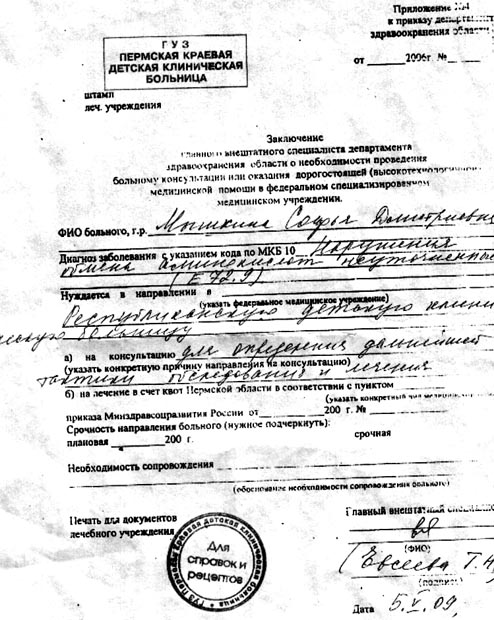 Приложение №4
к приказу департамента
здравоохранения области
от ______ 2006г. № ___
Г У З
ПЕРМСКАЯ КРАЕВАЯ
ДЕТСКАЯ КЛИНИЧЕСКАЯ
БОЛЬНИЦА
штамп
леч. учреждения
Заключение
главного внештатного специалиста департамента
здравоохранения области о необходимости проведения
больному консультации или оказания дорогостоящей (высокотехнологичной
медицинской помощи в федеральном специализированном
медицинском учреждении.
ФИО больного, г.р. Мышкина Софья Дмитриевна
Диагноз заболевания с указанием кода по МКБ 10 Нарушения
обмена аминокислот неуточненные
(E 72.9)
Нуждается в направлении в
(указать федеральное медицинское учреждение)
Республиканскую детскую клини
ческую больницу
а) на консультацию для определения дальнейшей
(указать конкретную причину направления на консультацию)
тактики обследования и лечения
б) на лечение в счет квот Пермской области в соответствии с пунктом
(указать конкретный
приказа Минздравсоцразвития России от ______ 200 г. № ______
Срочность направления больного (нужное подчеркнуть):
плановая ______ 200 г. срочная
Необходимость сопровождения ______
(обоснование необходимости сопровождения больного)
Печать для документов
лечебного учреждения
Главный внештатный специалист
(ФИО)
(Евсеева Т.Н
(подпись)
Дата 5.V.09,
ГУЗ Пермская Краевая детская клиническая больница
Для
справок и
рецептов